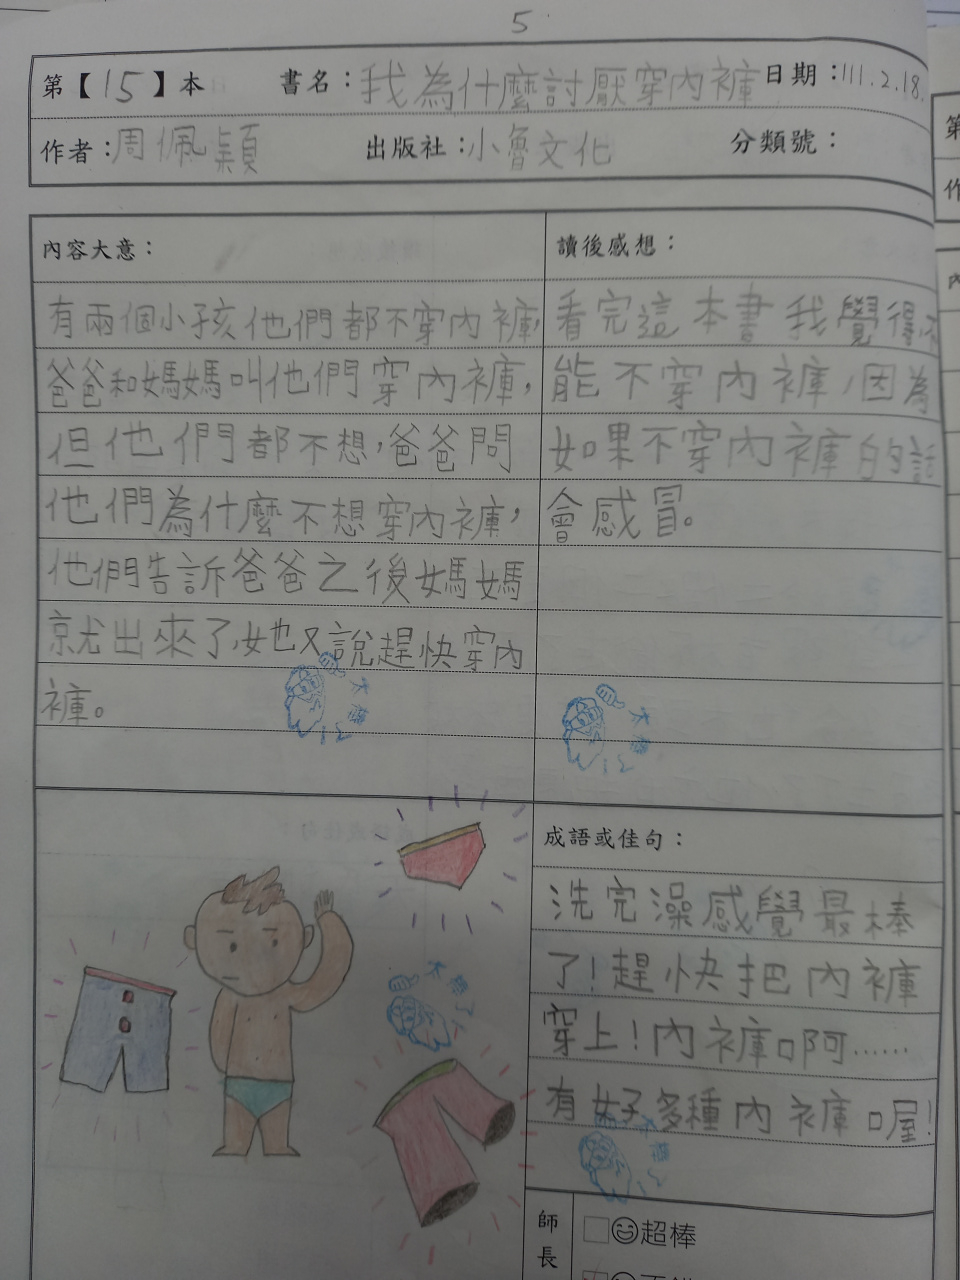 5
第【15】本 書名：我為什麼討厭穿內褲 日期：111.2.18.
作者：周佩穎 出版社：小魯文化 分類號：
內容大意：
有兩個小孩他們都不穿內褲,
爸爸和媽媽叫他們穿內褲,
但他們都不想,爸爸問
他們為什麼不想穿內褲,
他們告訴爸爸之後媽媽
就出來了,她又說趕快穿內
褲。
太棒了
讀後感想：
看完這本書我覺得不
能不穿內褲,因為
如果不穿內褲的話
會感冒。
太棒了
太棒了
成語或佳句：
洗完澡感覺最棒
了!趕快把內褲
穿上!內褲啊……
有好多種內褲喔!
太棒了
師長
□超棒
第
作
內